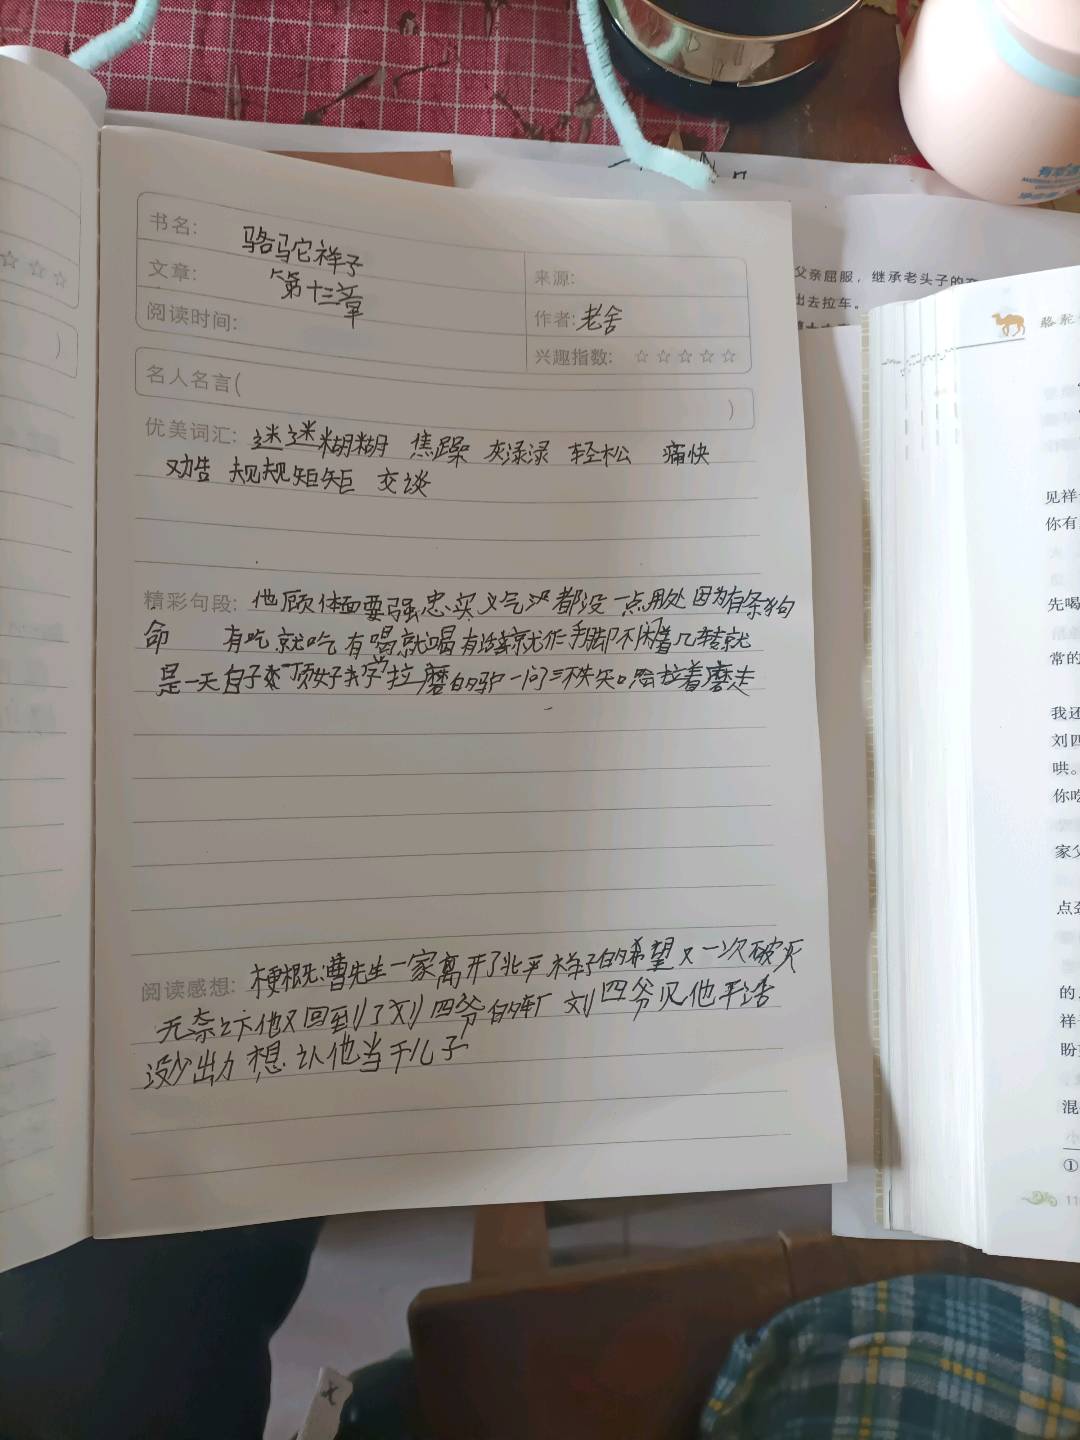 书名: 骆驼祥子
来源:
文章: 第十三章
作者: 老舍
阅读时间:
兴趣指数: ☆☆☆☆☆
名人名言( )
优美词汇: 迷迷糊糊 焦躁 灰渌渌 轻松 痛快
劝告 规规矩矩 交谈
精彩句段: 他顾体面要强忠实义气没都没一点用处因为有条狗
命 有吃就吃有喝就喝有活就作手脚不闲着几转就
是一天自子顶好学拉磨的驴一问三不知只会拉着磨走
阅读感想: 梗概:曹先生一家离开了北平祥子的希望又一次破灭
无奈之下他又回到了刘四爷的车厂刘四爷见他平活
没少出力想认他当干儿子
☆☆☆
)
父亲屈服，继承老头子的
出去拉车。
骆驼
见祥
你有
先喝
常的
我还
刘四
哄。
你吃
家父
点
的
祥
盼
混
①
11